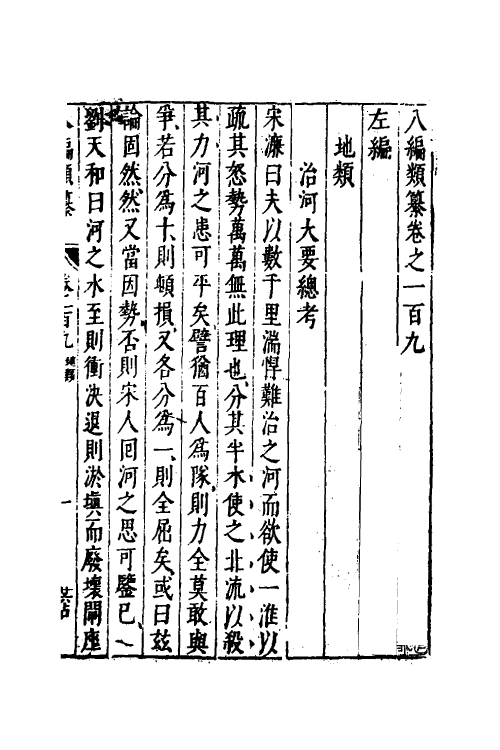 八編類纂卷之一百九
左編
地類
治河大要總考
宋濂曰夫以數千里湍悍難治之河而欲使一淮以
疏其怒勢萬萬無此理也分其半水使之北流以殺
其力河之患可平矣譬猶百人爲隊則力全莫敢與
爭若分爲十則頓損又各分爲一則全屈矣或曰玆
論固然然又當因勢否則宋人囘河之患可鑒已
劉天和曰河之水至則衝決退則淤塡而廢壞閘座
八編類纂
卷一百九 地類
一